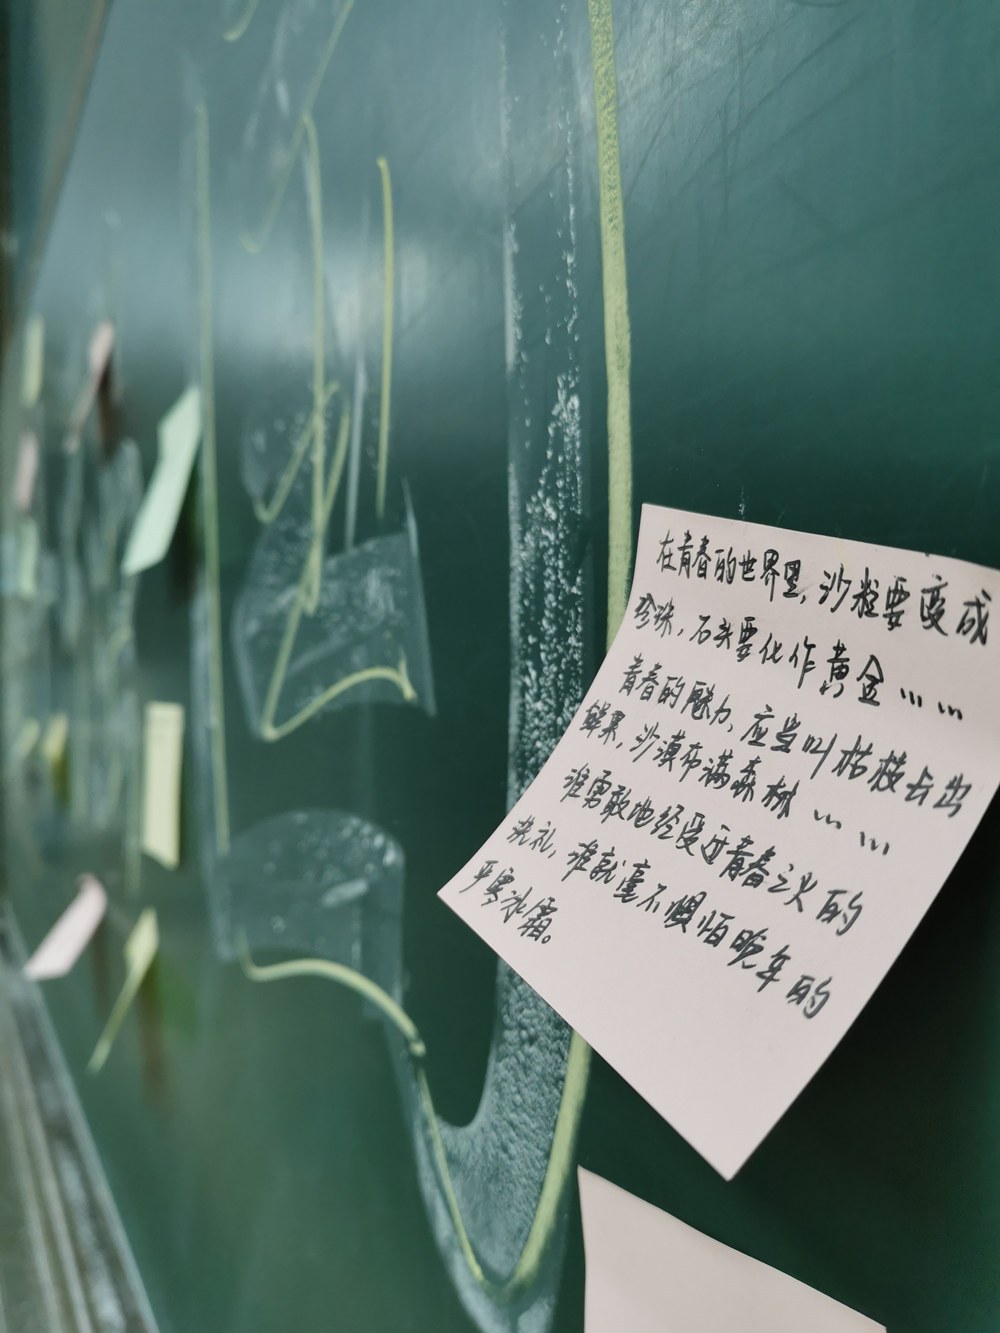 在青春的世界里，沙粒要变成
珍珠，石头要化作黄金……
青春的魅力，应当叫枯枝长出
鲜果，沙漠布满森林……
谁勇敢地经受过青春之火的
洗礼，谁就毫不惧怕晚年的
严寒冰霜。